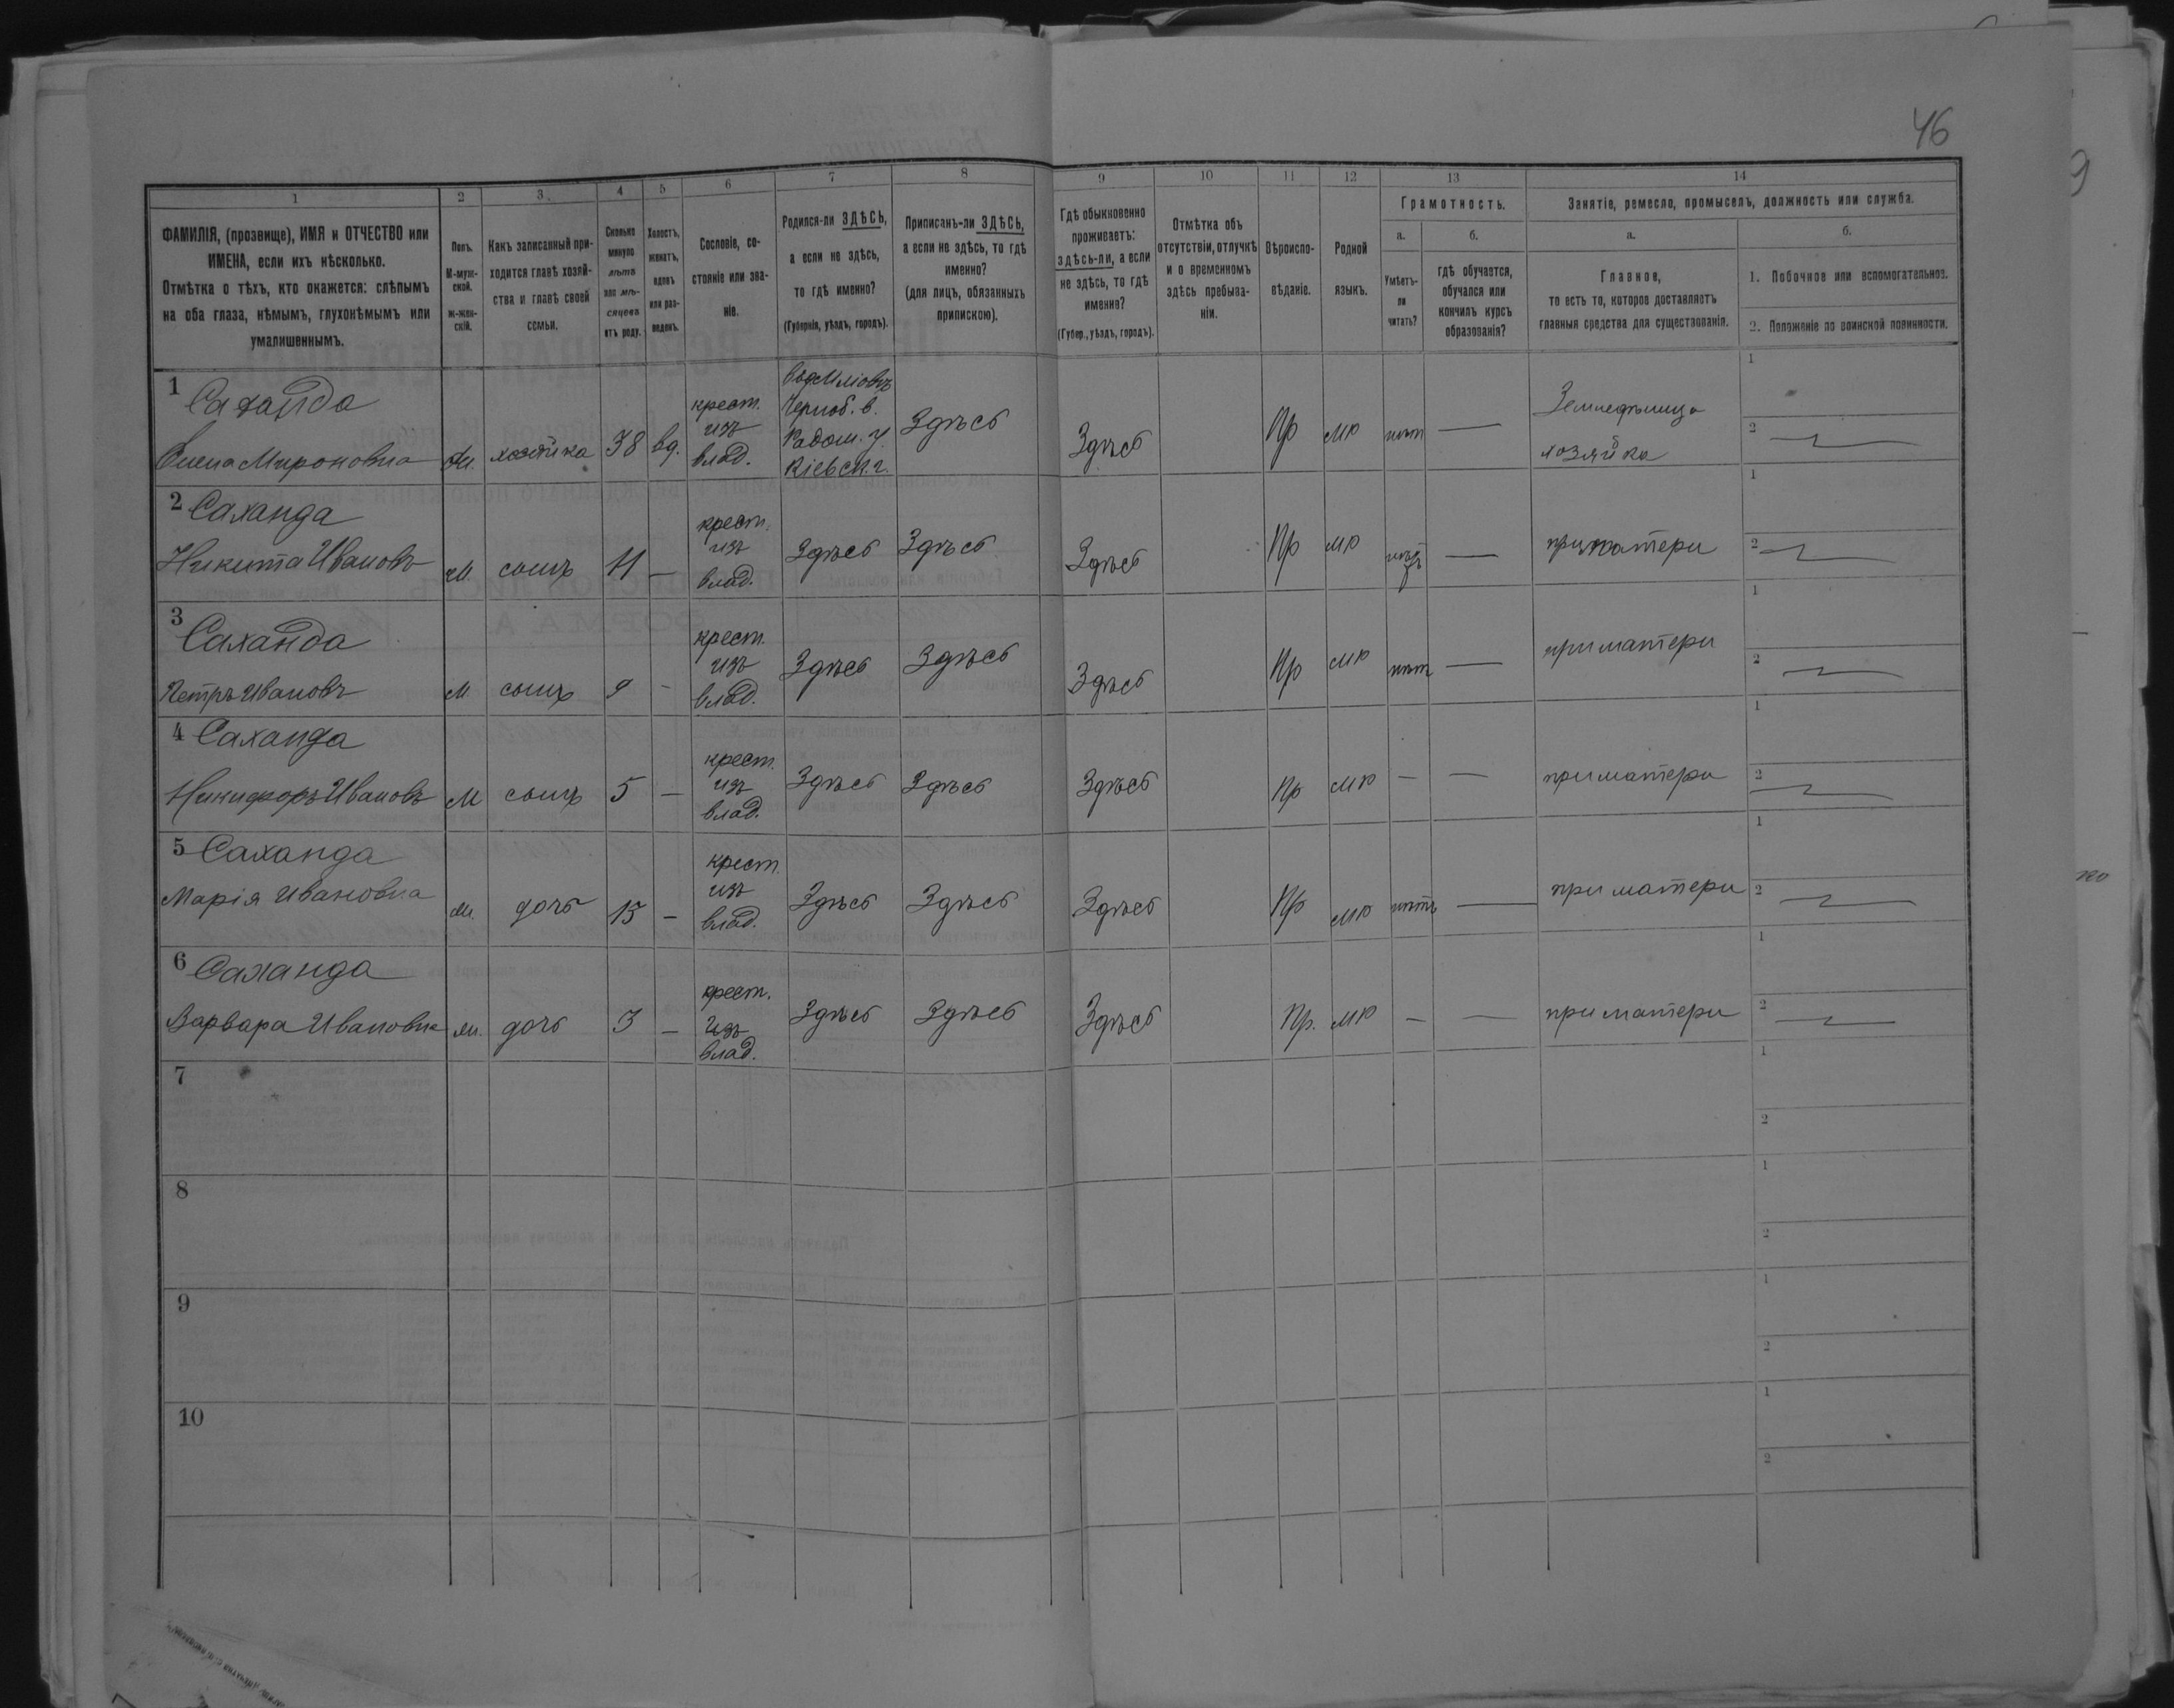 46
1 2 3. 4 5 6 7 8 9 10 11 12 13 14
ФАМИЛІЯ, (прозвище), ИМЯ и ОТЧЕСТВО или
ИМЕНА, если ихъ нѣсколько.
Отмѣтка о тѣхъ, кто окажется: слѣпымъ
на оба глаза, нѣмымъ, глухонѣмымъ или
умалишеннымъ.
Полъ.
М-муж-
ской.
ж-жен-
скій.
Какъ записанный при-
ходится главѣ хозяй-
ства и главѣ своей
семьи.
Сколько
минуло
лѣтъ
или мѣ-
сяцевъ
отъ роду.
Холостъ,
женатъ,
вдовъ
или раз-
веденъ.
Сословіе, со-
стояніе или зва-
ніе.
Родился-ли ЗДѢСЬ,
а если не здѣсь,
то гдѣ именно?
(Губернія, уѣздъ, городъ).
Приписанъ-ли ЗДѢСЬ,
а если не здѣсь, то гдѣ
именно?
(для лицъ, обязанныхъ
припискою).
Гдѣ обыкновенно
проживаетъ:
здѣсь-ли, а если
не здѣсь, то гдѣ
именно?
(Губер., уѣздъ, городъ).
Отмѣтка объ
отсутствіи, отлучкѣ
и о временномъ
здѣсь пребыва-
ніи.
Вѣроиспо-
вѣданіе.
Родной
языкъ.
Грамотность.
а.
Умѣетъ-
ли
читать?
б.
гдѣ обучается,
обучался или
кончилъ курсъ
образованія?
Занятіе, ремесло, промыселъ, должность или служба.
а.
Главное,
то есть то, которое доставляетъ
главныя средства для существованія.
б.
1. Побочное или вспомогательное.
2. Положеніе по воинской повинности.
1 Саханда
Олена Мироновна ж. хозяйка 38 вд. крест. изъ влад.
Черноб. в.
Радом. у.
Кіевск. г.
Здѣсь Здѣсь Пр мр нѣт —
хозяйка
1
2
2 Саханда
Никита Ивановъ М. сынъ 11 — крест. изъ влад. Здѣсь Здѣсь Здѣсь Пр мр — при матери
1
2
3 Саханда
Петръ Ивановъ М сынъ 9 - крест. изъ влад. Здѣсь Здѣсь Здѣсь Пр мр нѣт — при матери
1
2
4 Саханда
Никифоръ Ивановъ М сынъ 5 — крест. изъ влад. Здѣсь Здѣсь Здѣсь Пр мр — — при матери
1
2
5 Саханда
Марія Ивановна дочь 15 - крест. изъ влад. Здѣсь Здѣсь Здѣсь Пр мр нѣтъ — при матери
1
2
6 Саханда
Варвара Ивановна дочь 3 — крест. изъ влад. Здѣсь Здѣсь Здѣсь Пр. мр — — при матери
1
2
7
1
2
8
1
2
9
1
2
10
1
2